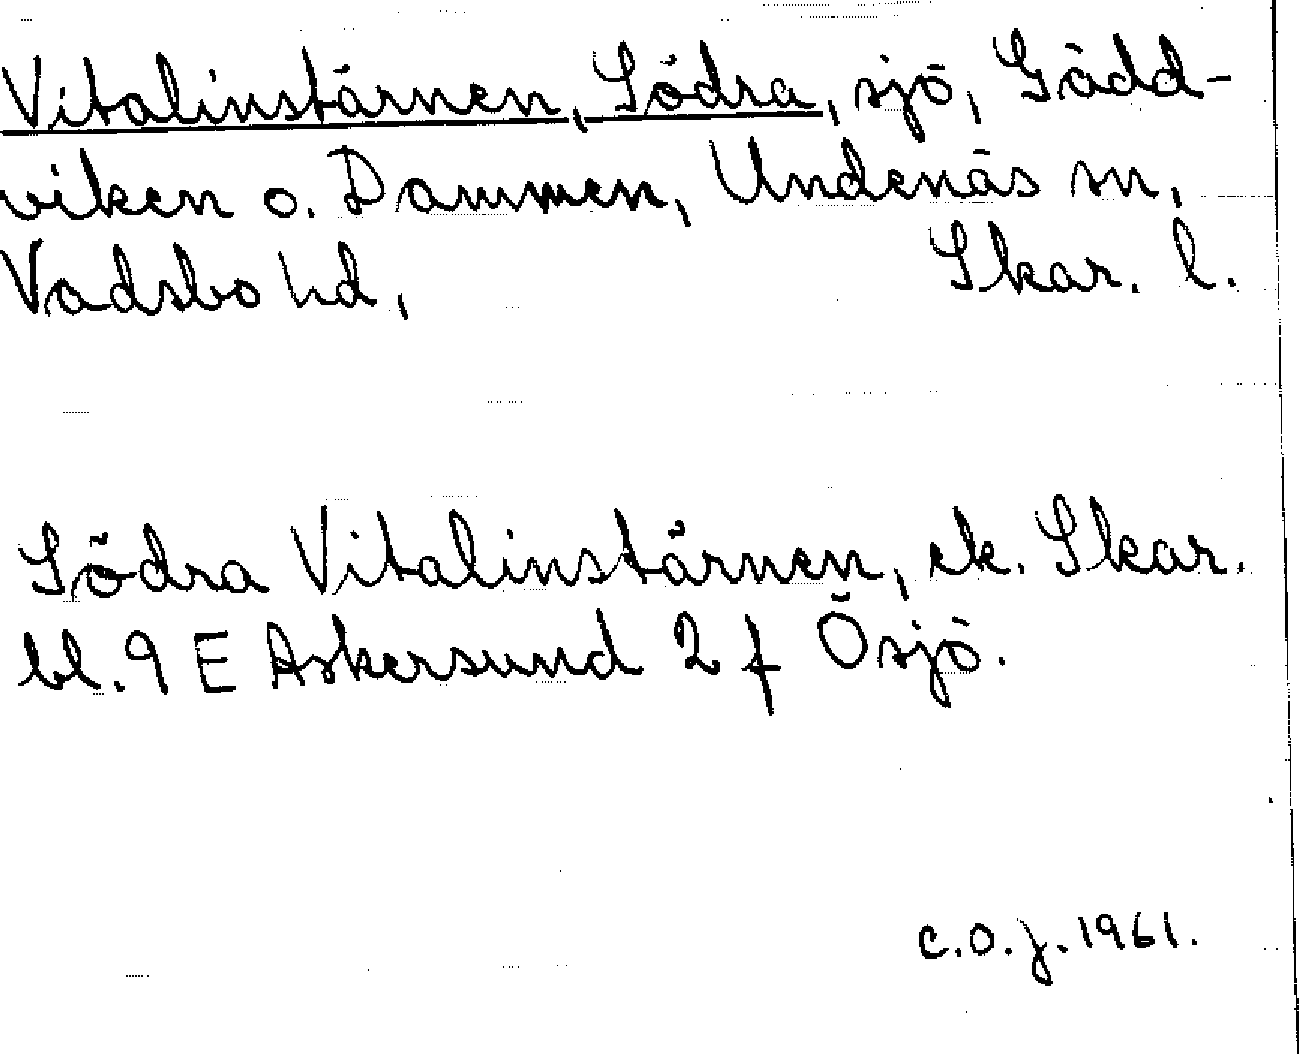 Vitalinstärnen, Södra, sjö, Gädd-
viken o. Dammen, Undenäs sn,
Vadsbo hd, Skar. l.
Södra Vitalinstärnen, ek. Skar.
bl. 9 E Askersund 2 f Ösjö.
C.O.J. 1961.